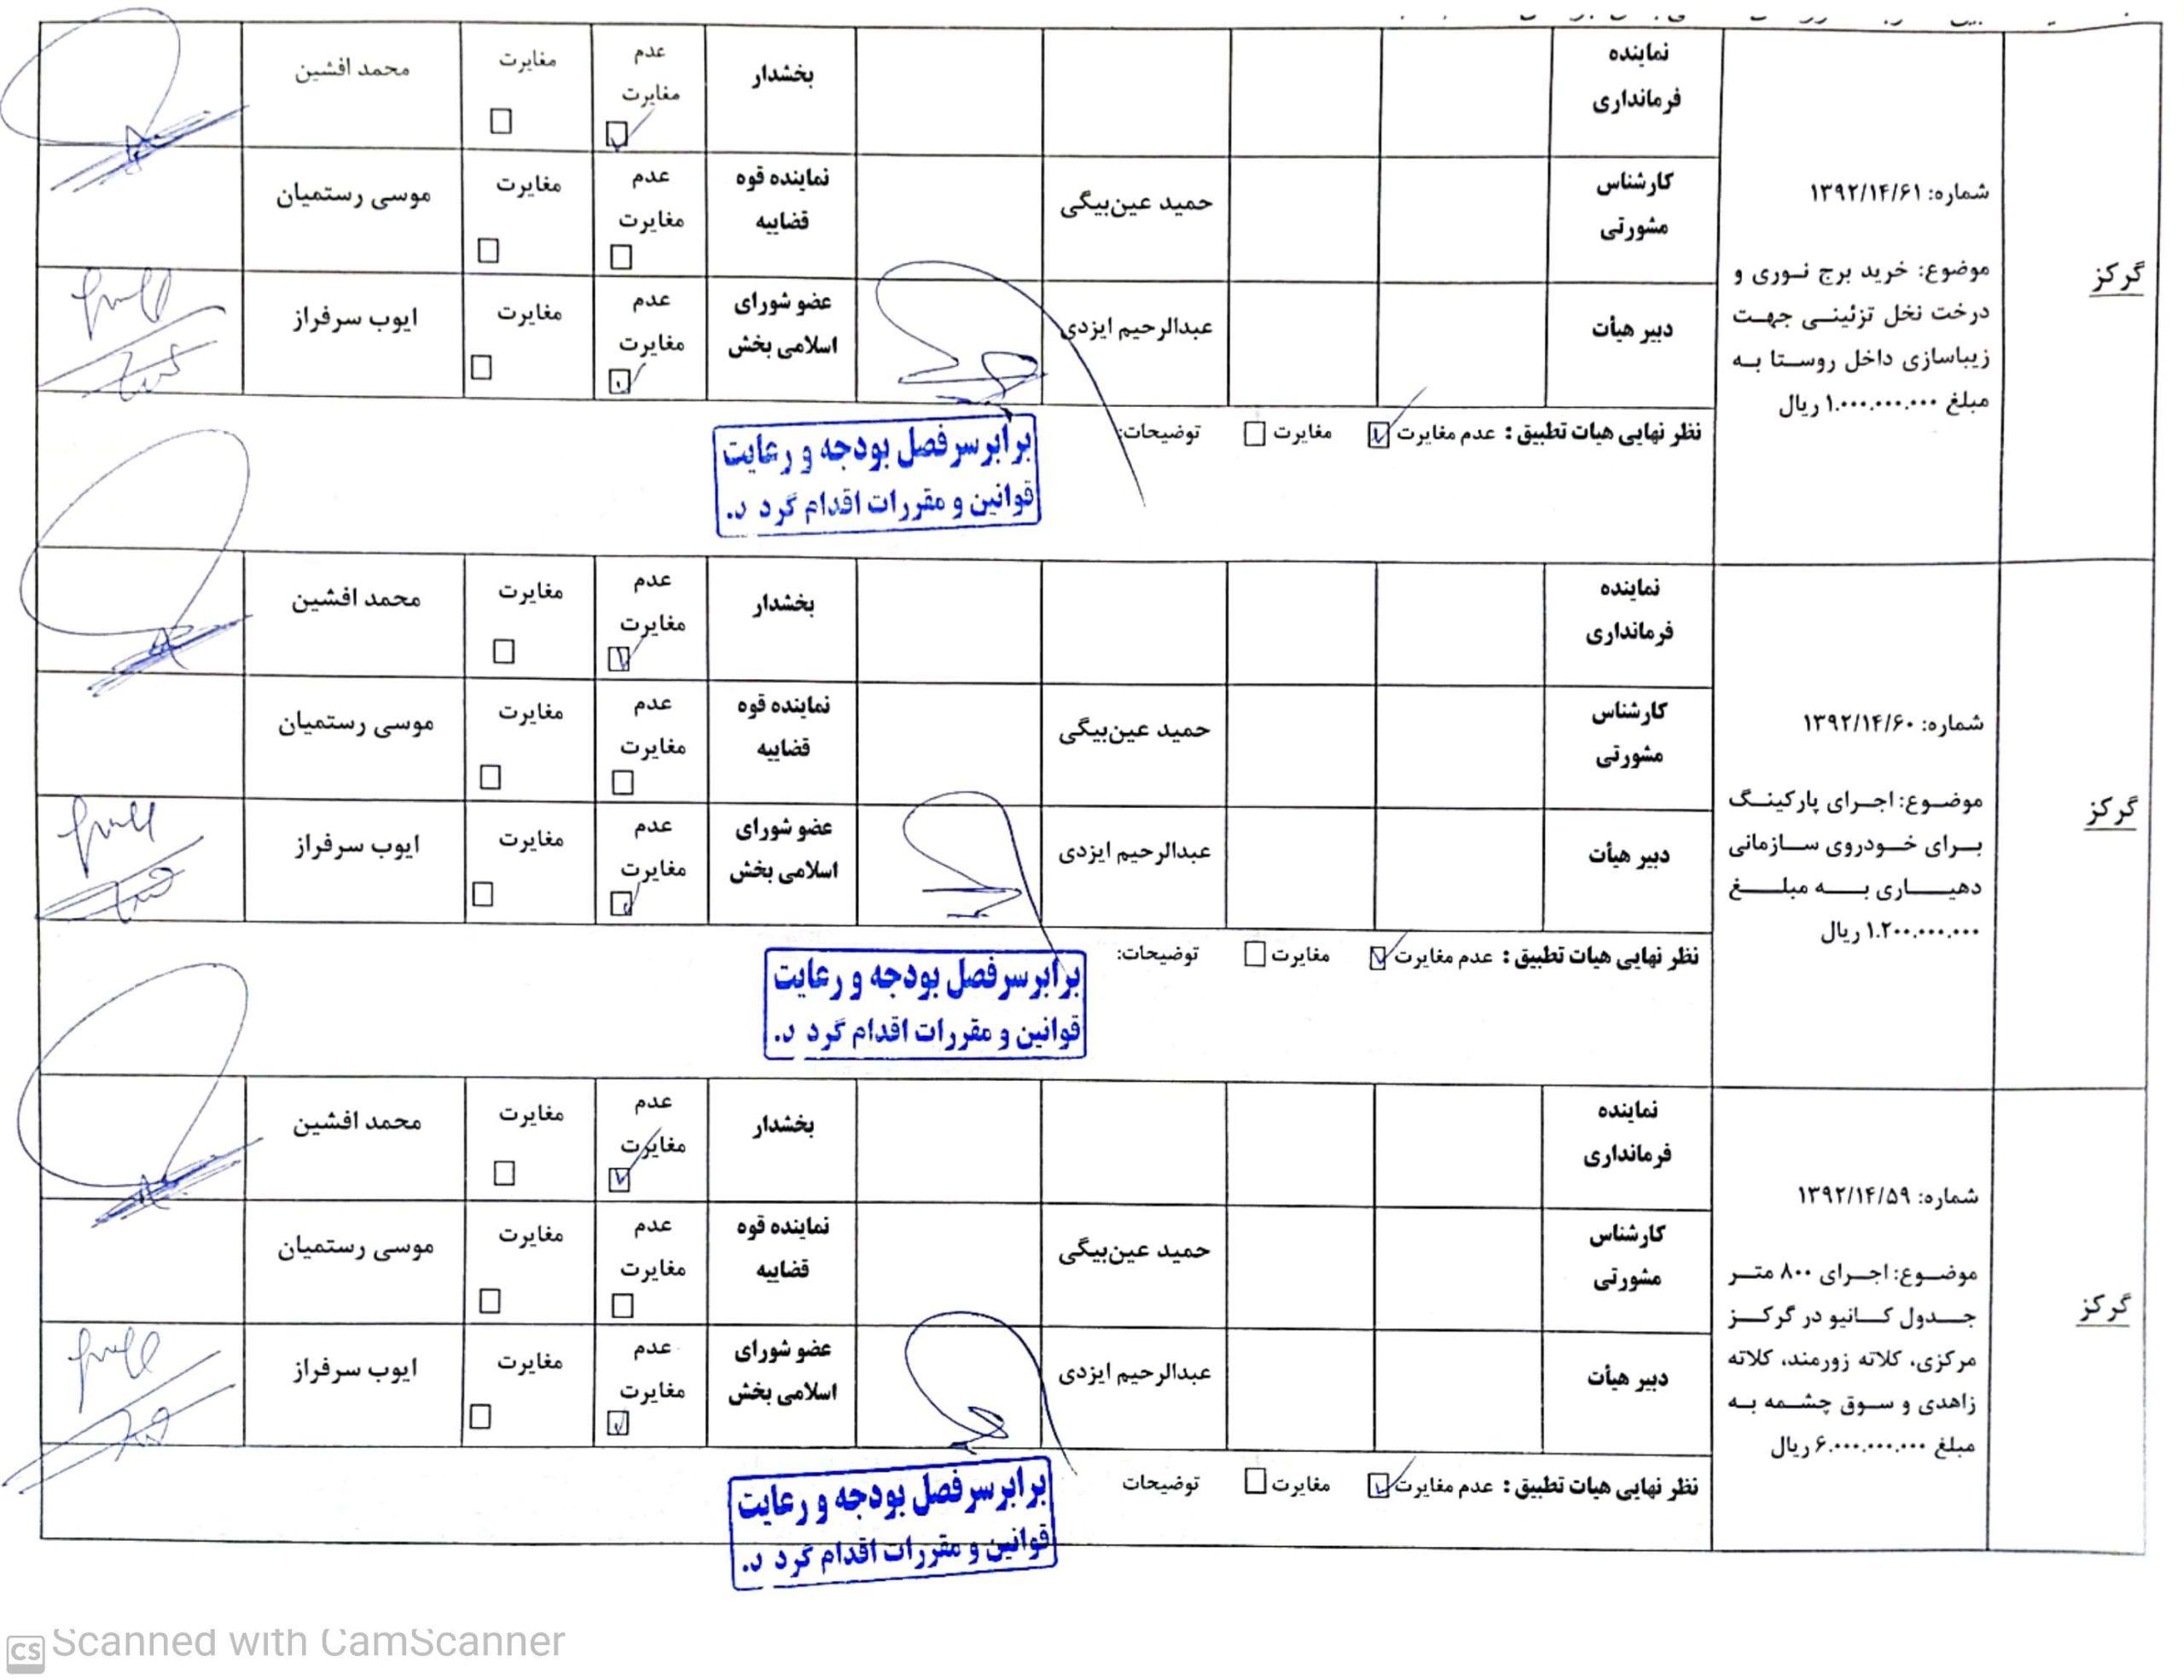 گرکز
شماره: ۱۳۹۲/۱۴/۶۱
موضوع: خرید برج نوری و
درخت نخل تزئینی جهت
زیباسازی داخل روستا به
مبلغ ۱.۰۰۰.۰۰۰.۰۰۰ ریال
نماینده
فرمانداری
بخشدار
عدم
مغایرت
مغایرت
محمد افشین
کارشناس
مشورتی
حمید عین‌بیگی
نماینده قوه
قضاییه
عدم
مغایرت
مغایرت
موسی رستمیان
دبیر هیأت
عبدالرحیم ایزدی
عضو شورای
اسلامی بخش
عدم
مغایرت
مغایرت
ایوب سرفراز
نظر نهایی هیات تطبیق : عدم مغایرت مغایرت توضیحات:
برابر سرفصل بودجه و رعایت
قوانین و مقررات اقدام گرد د.
گرکز
شماره: ۱۳۹۲/۱۴/۶۰
موضوع: اجرای پارکینگ
برای خودروی سازمانی
دهیاری به مبلغ
۱.۲۰۰.۰۰۰.۰۰۰ ریال
نماینده
فرمانداری
بخشدار
عدم
مغایرت
مغایرت
محمد افشین
کارشناس
مشورتی
حمید عین‌بیگی
نماینده قوه
قضاییه
عدم
مغایرت
مغایرت
موسی رستمیان
دبیر هیأت
عبدالرحیم ایزدی
عضو شورای
اسلامی بخش
عدم
مغایرت
مغایرت
ایوب سرفراز
نظر نهایی هیات تطبیق : عدم مغایرت مغایرت توضیحات:
برابر سرفصل بودجه و رعایت
قوانین و مقررات اقدام گرد د.
گرکز
شماره: ۱۳۹۲/۱۴/۵۹
موضوع: اجرای ۸۰۰ متر
جدول کانیو در گرکز
مرکزی، کلاته زورمند، کلاته
زاهدی و سوق چشمه به
مبلغ ۶.۰۰۰.۰۰۰.۰۰۰ ریال
نماینده
فرمانداری
بخشدار
عدم
مغایرت
مغایرت
محمد افشین
کارشناس
مشورتی
حمید عین‌بیگی
نماینده قوه
قضاییه
عدم
مغایرت
مغایرت
موسی رستمیان
دبیر هیأت
عبدالرحیم ایزدی
عضو شورای
اسلامی بخش
عدم
مغایرت
مغایرت
ایوب سرفراز
نظر نهایی هیات تطبیق : عدم مغایرت مغایرت توضیحات
برابر سرفصل بودجه و رعایت
قوانین و مقررات اقدام گرد د.
CS Scanned with CamScanner